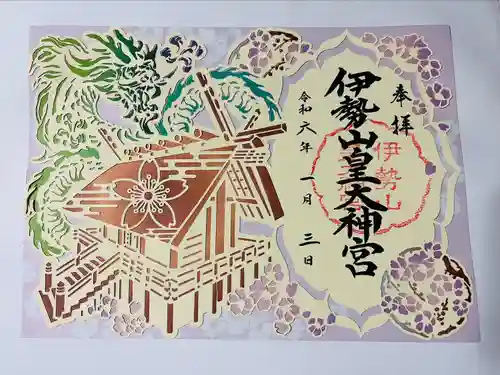 奉拝
伊勢山皇大神宮
伊勢山
令和六年 一月 三日